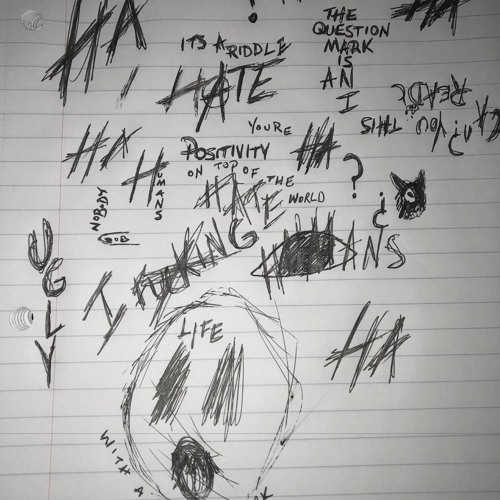 HA
HA
THE
QUESTION
MARK
IS
AN
I
ITS A RIDDLE
HATE
CAN YOU
READ
THIS
?
YOURE
POSITIVITY
HA
HA
HUMANS
ON TOP OF
THE
WORLD
HATE
?
¿
NOBODY
UGLY
I
FUCKING
HUMANS
LIFE
HA
WITH A